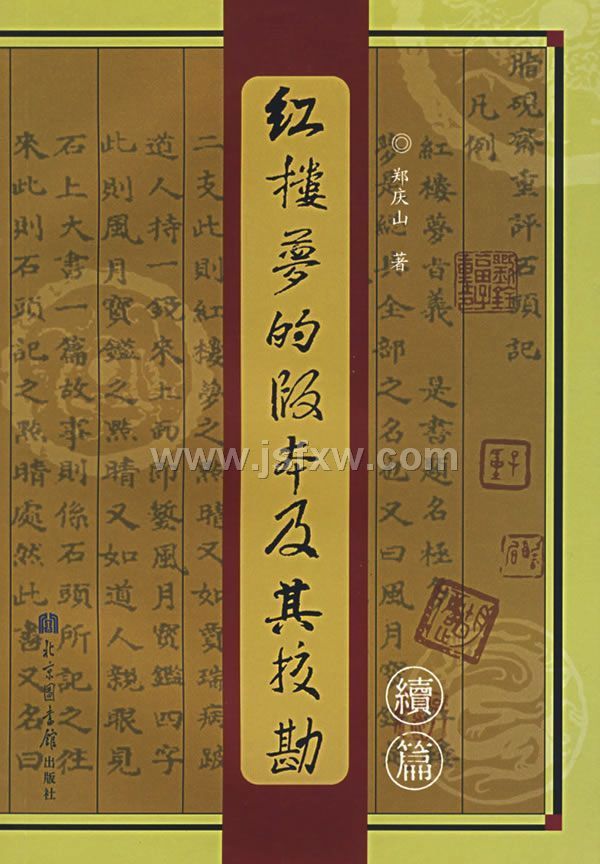 脂硯齋重評石頭記
凡例
紅樓夢旨義 是書題名極
夢是總其全部之名也又曰風月寳
◎ 郑庆山 著
红楼梦的版本及其校勘
續篇
二支此則紅樓夢之點睛又如賈瑞病跛
道人持一鏡來上面即鏨風月寳鑑四字
此則風月寳鑑之點睛又如道人親眼見
石上大書一篇故事則係石頭所記之徃
來此則石頭記之點睛處然此書又名曰
北京圖書館出版社
www.jsfxw.com